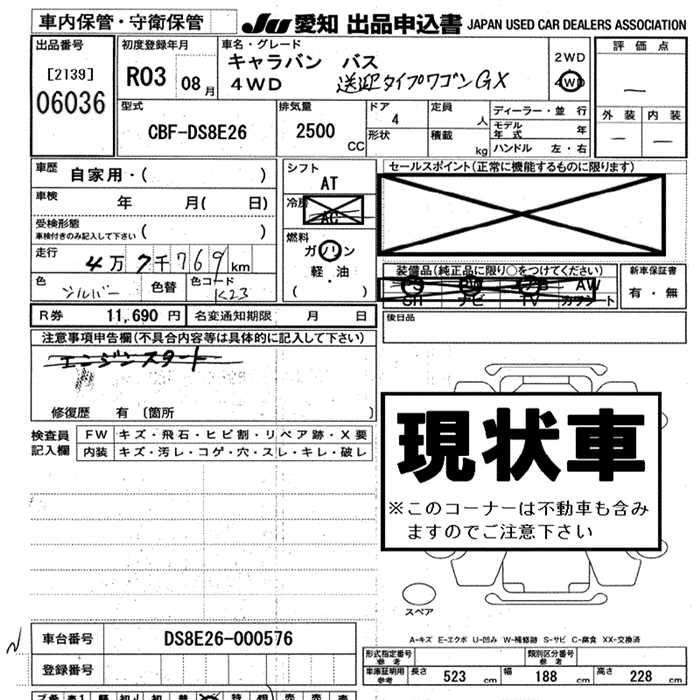 車内保管・守衛保管
JU 愛知 出品申込書 JAPAN USED CAR DEALERS ASSOCIATION
出品番号
[2139]
06036
初度登録年月
R03 08月
車名・グレード
キャラバン バス
4WD 送迎タイプワゴンGX
2WD
4WD
評価点
—
外装 内装
— —
型式
CBF-DS8E26
排気量
2500
CC
ドア
4
形状
定員
人
積載
kg
ディーラー・並行
モデル年式 年
ハンドル 左・右
車歴
自家用・( )
車検
年 月( 日)
受検形態
車検付きのみ記入して下さい ( )
走行
4万7千769km
色
シルバー
色替
色コード
K23
シフト
AT
冷房
AC
燃料
ガソリン
軽・油
( )
セールスポイント(正常に機能するものに限ります)
装備品(純正品に限り○をつけてください)
PS PW AB AW
SR ナビ TV カワシート
新車保証書
有・無
後日品
R券 11,690 円 名変通知期限 月 日
注意事項申告欄(不具合内容等は具体的に記入して下さい)
エンジンスタート
修復歴 有 〔箇所 〕
検査員
記入欄
FW キズ・飛石・ヒビ割・リペア跡・X要
内装 キズ・汚レ・コゲ・穴・スレ・キレ・破レ
現状車
※このコーナーは不動車も含み
ますのでご注意下さい
スペア
A-キズ E-エクボ U-凹み W-補修跡 S-サビ C-腐食 XX-交換済
車台番号 DS8E26-000576
登録番号
形式指定番号
参考
類別区分番号
参考
車庫証明用
参考
長さ 523 cm 幅 188 cm 高さ 228 cm